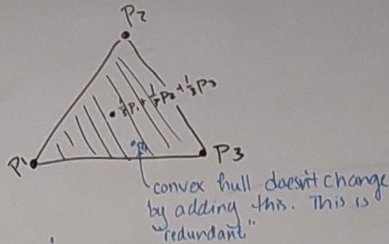 P2
⅓P1+⅓P2+⅓P3
P1
P3
convex hull doesn't change
by adding this. This is
"redundant"